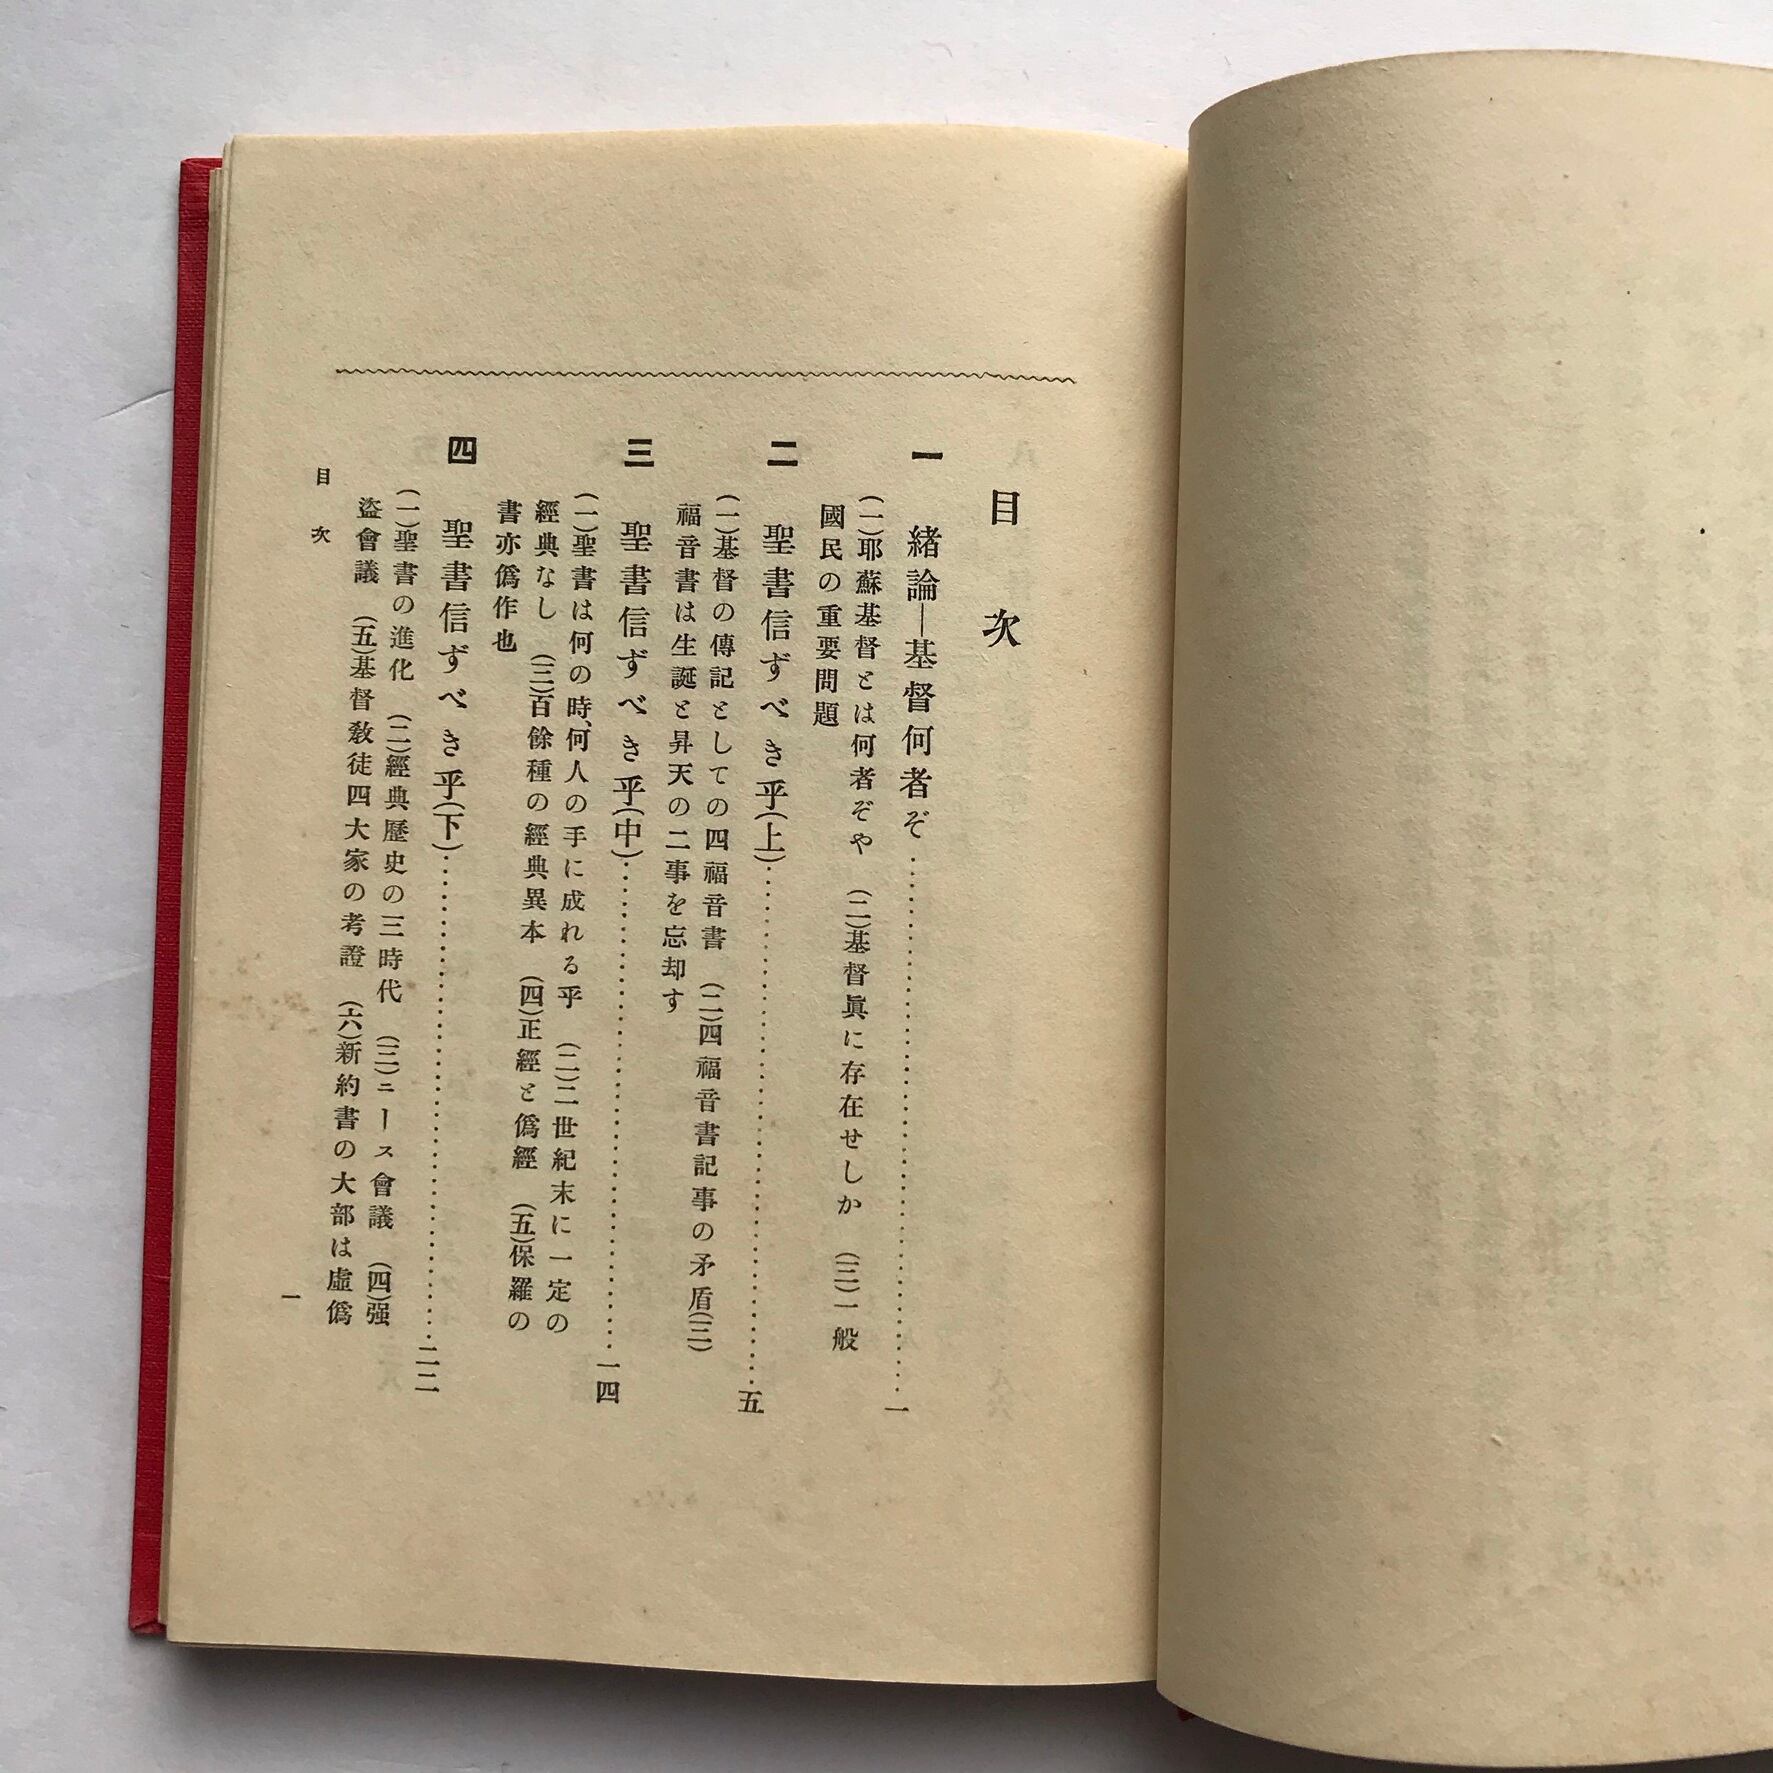 目次
一 緒論―基督何者ぞ……………………一
(一)耶蘇基督とは何者ぞや (二)基督眞に存在せしか (三)一般
國民の重要問題
二 聖書信ずべき乎(上)……………………五
(一)基督の傳記としての四福音書 (二)四福音書記事の矛盾(三)
福音書は生誕と昇天の二事を忘却す
三 聖書信ずべき乎(中)……………………一四
(一)聖書は何の時、何人の手に成れる乎 (二)二世紀末に一定の
經典なし (三)百餘種の經典異本 (四)正經と僞經 (五)保羅の
書亦僞作也
四 聖書信ずべき乎(下)……………………二二
(一)聖書の進化 (二)經典歷史の三時代 (三)ニース會議 (四)强
盜會議 (五)基督敎徒四大家の考證 (六)新約書の大部は虛僞
目次
一